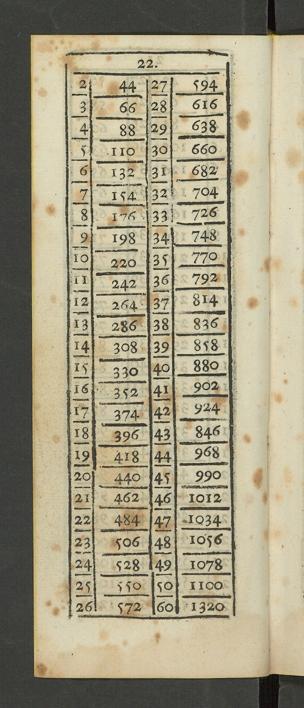 22.
2 44 27 594
3 66 28 616
4 88 29 638
5 110 30 660
6 132 31 682
7 154 32 704
8 176 33 726
9 198 34 748
10 220 35 770
11 242 36 792
12 264 37 814
13 286 38 836
14 308 39 858
15 330 40 880
16 352 41 902
17 374 42 924
18 396 43 846
19 418 44 968
20 440 45 990
21 462 46 1012
22 484 47 1034
23 506 48 1056
24 528 49 1078
25 550 50 1100
26 572 60 1320